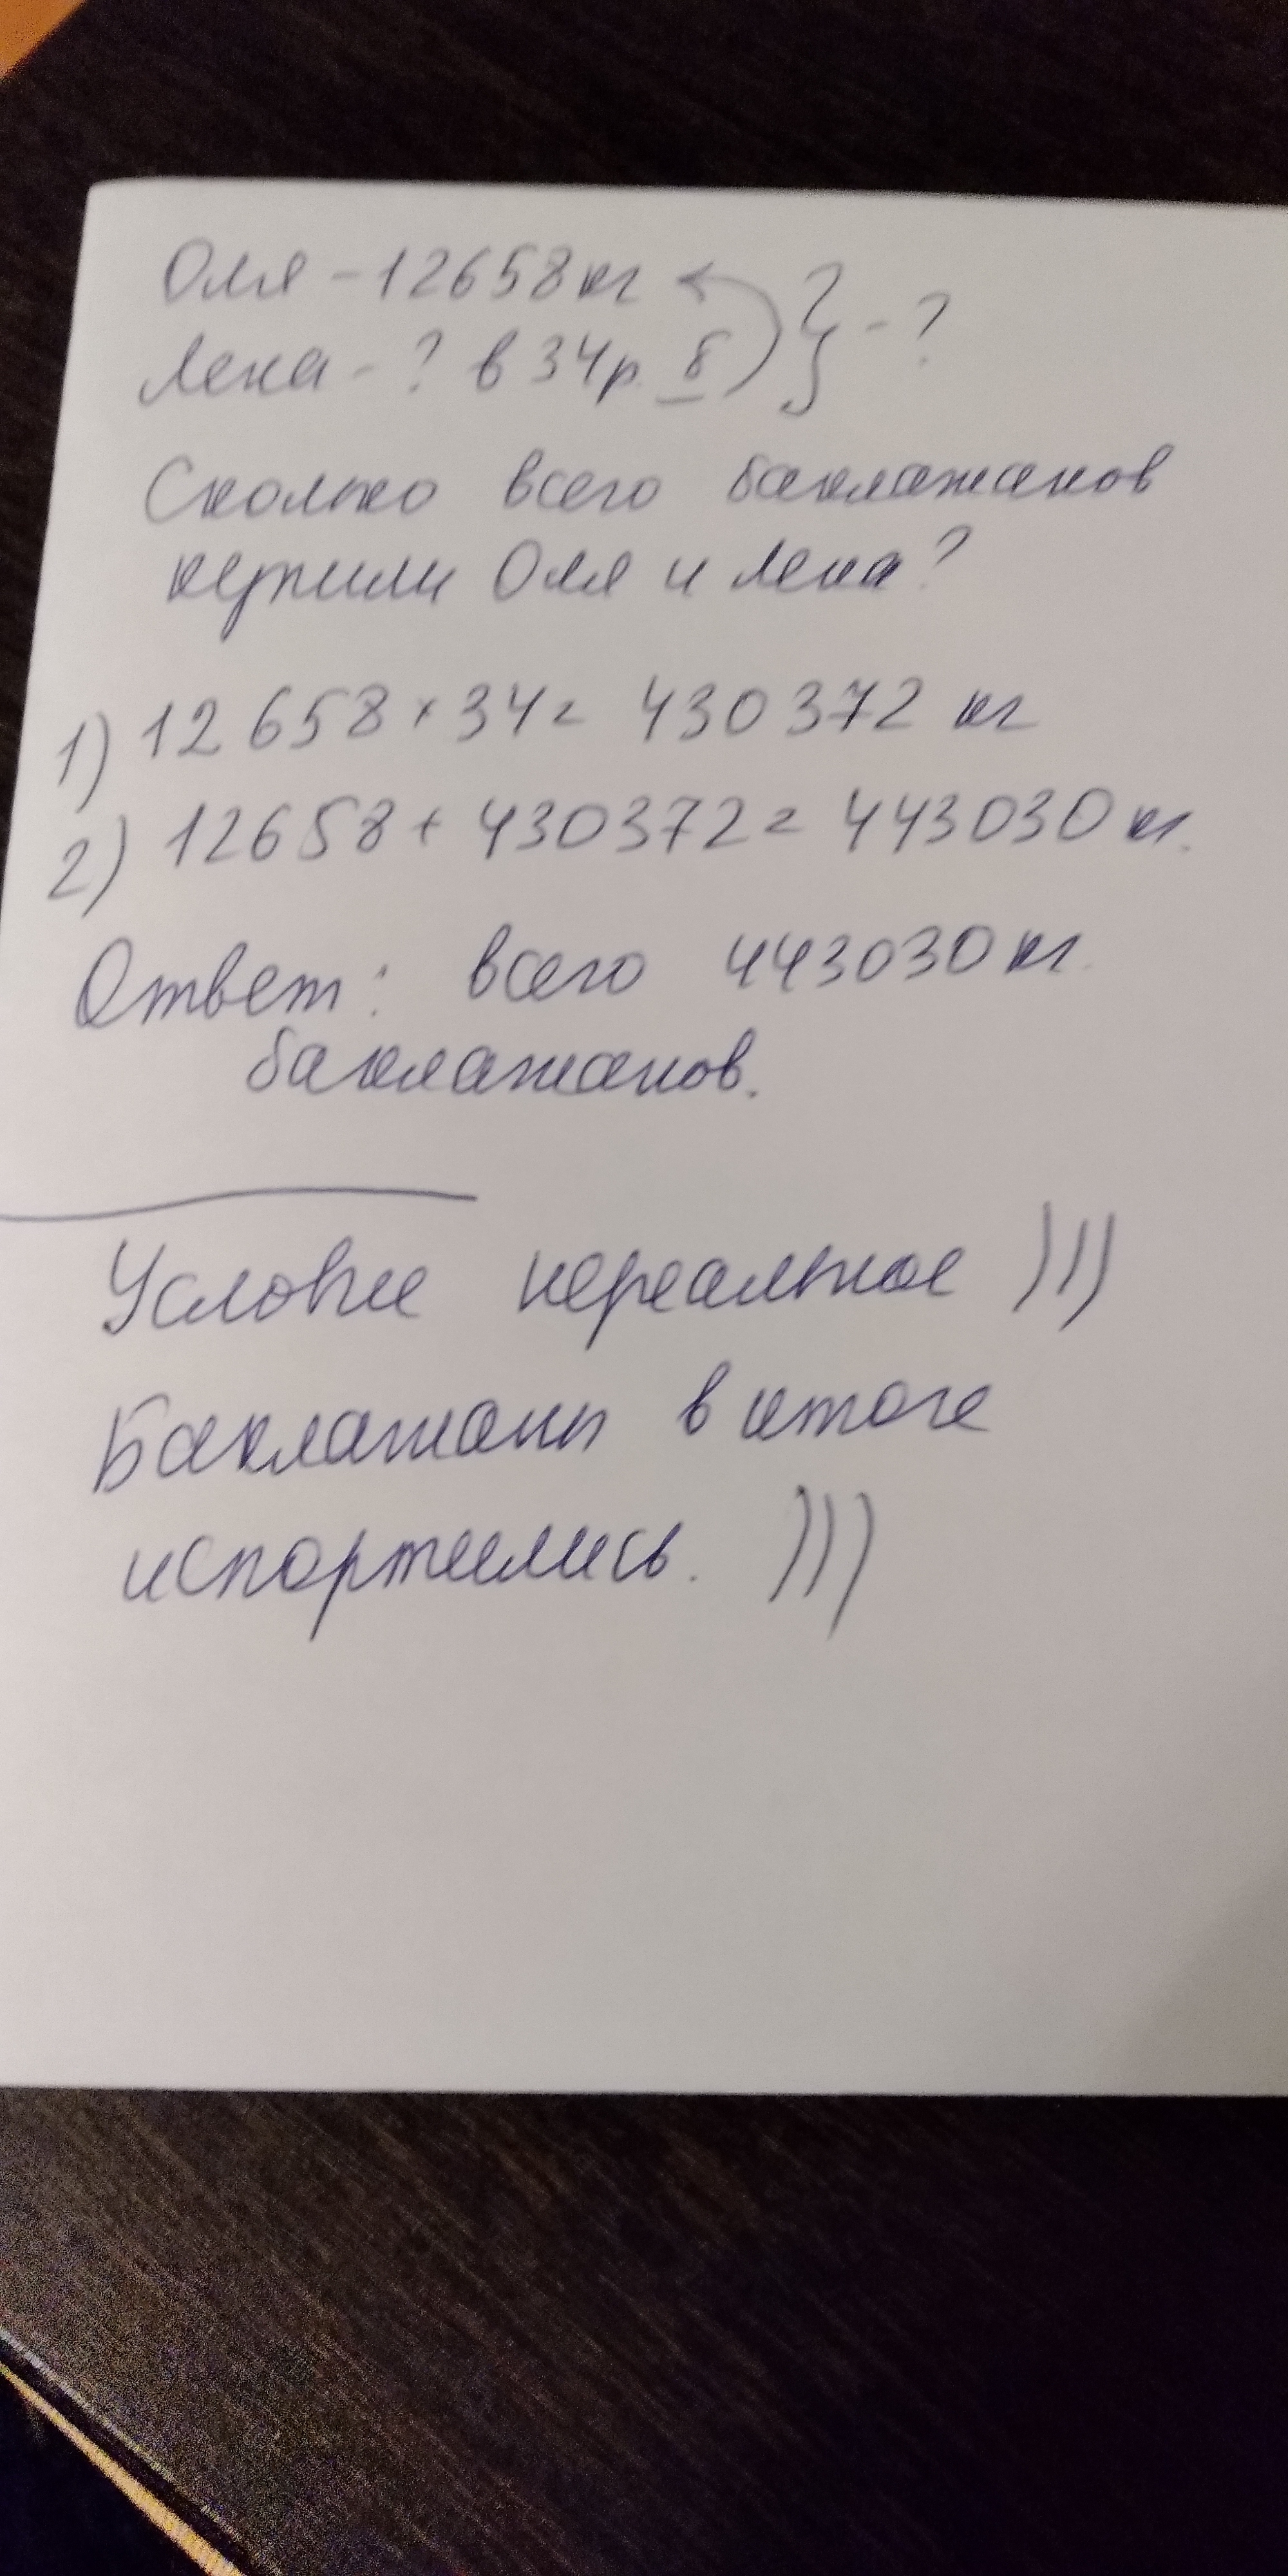 Оля - 12658 кг } - ?
Лена - ? в 34 р. б
Сколько всего баклажанов
купили Оля и Лена?
1) 12 658 × 34 = 430 372 кг
2) 12658 + 430372 = 443030 кг.
Ответ: всего 443030 кг.
баклажанов.
Условие нереальное )))
Баклажаны в итоге
испортились. )))